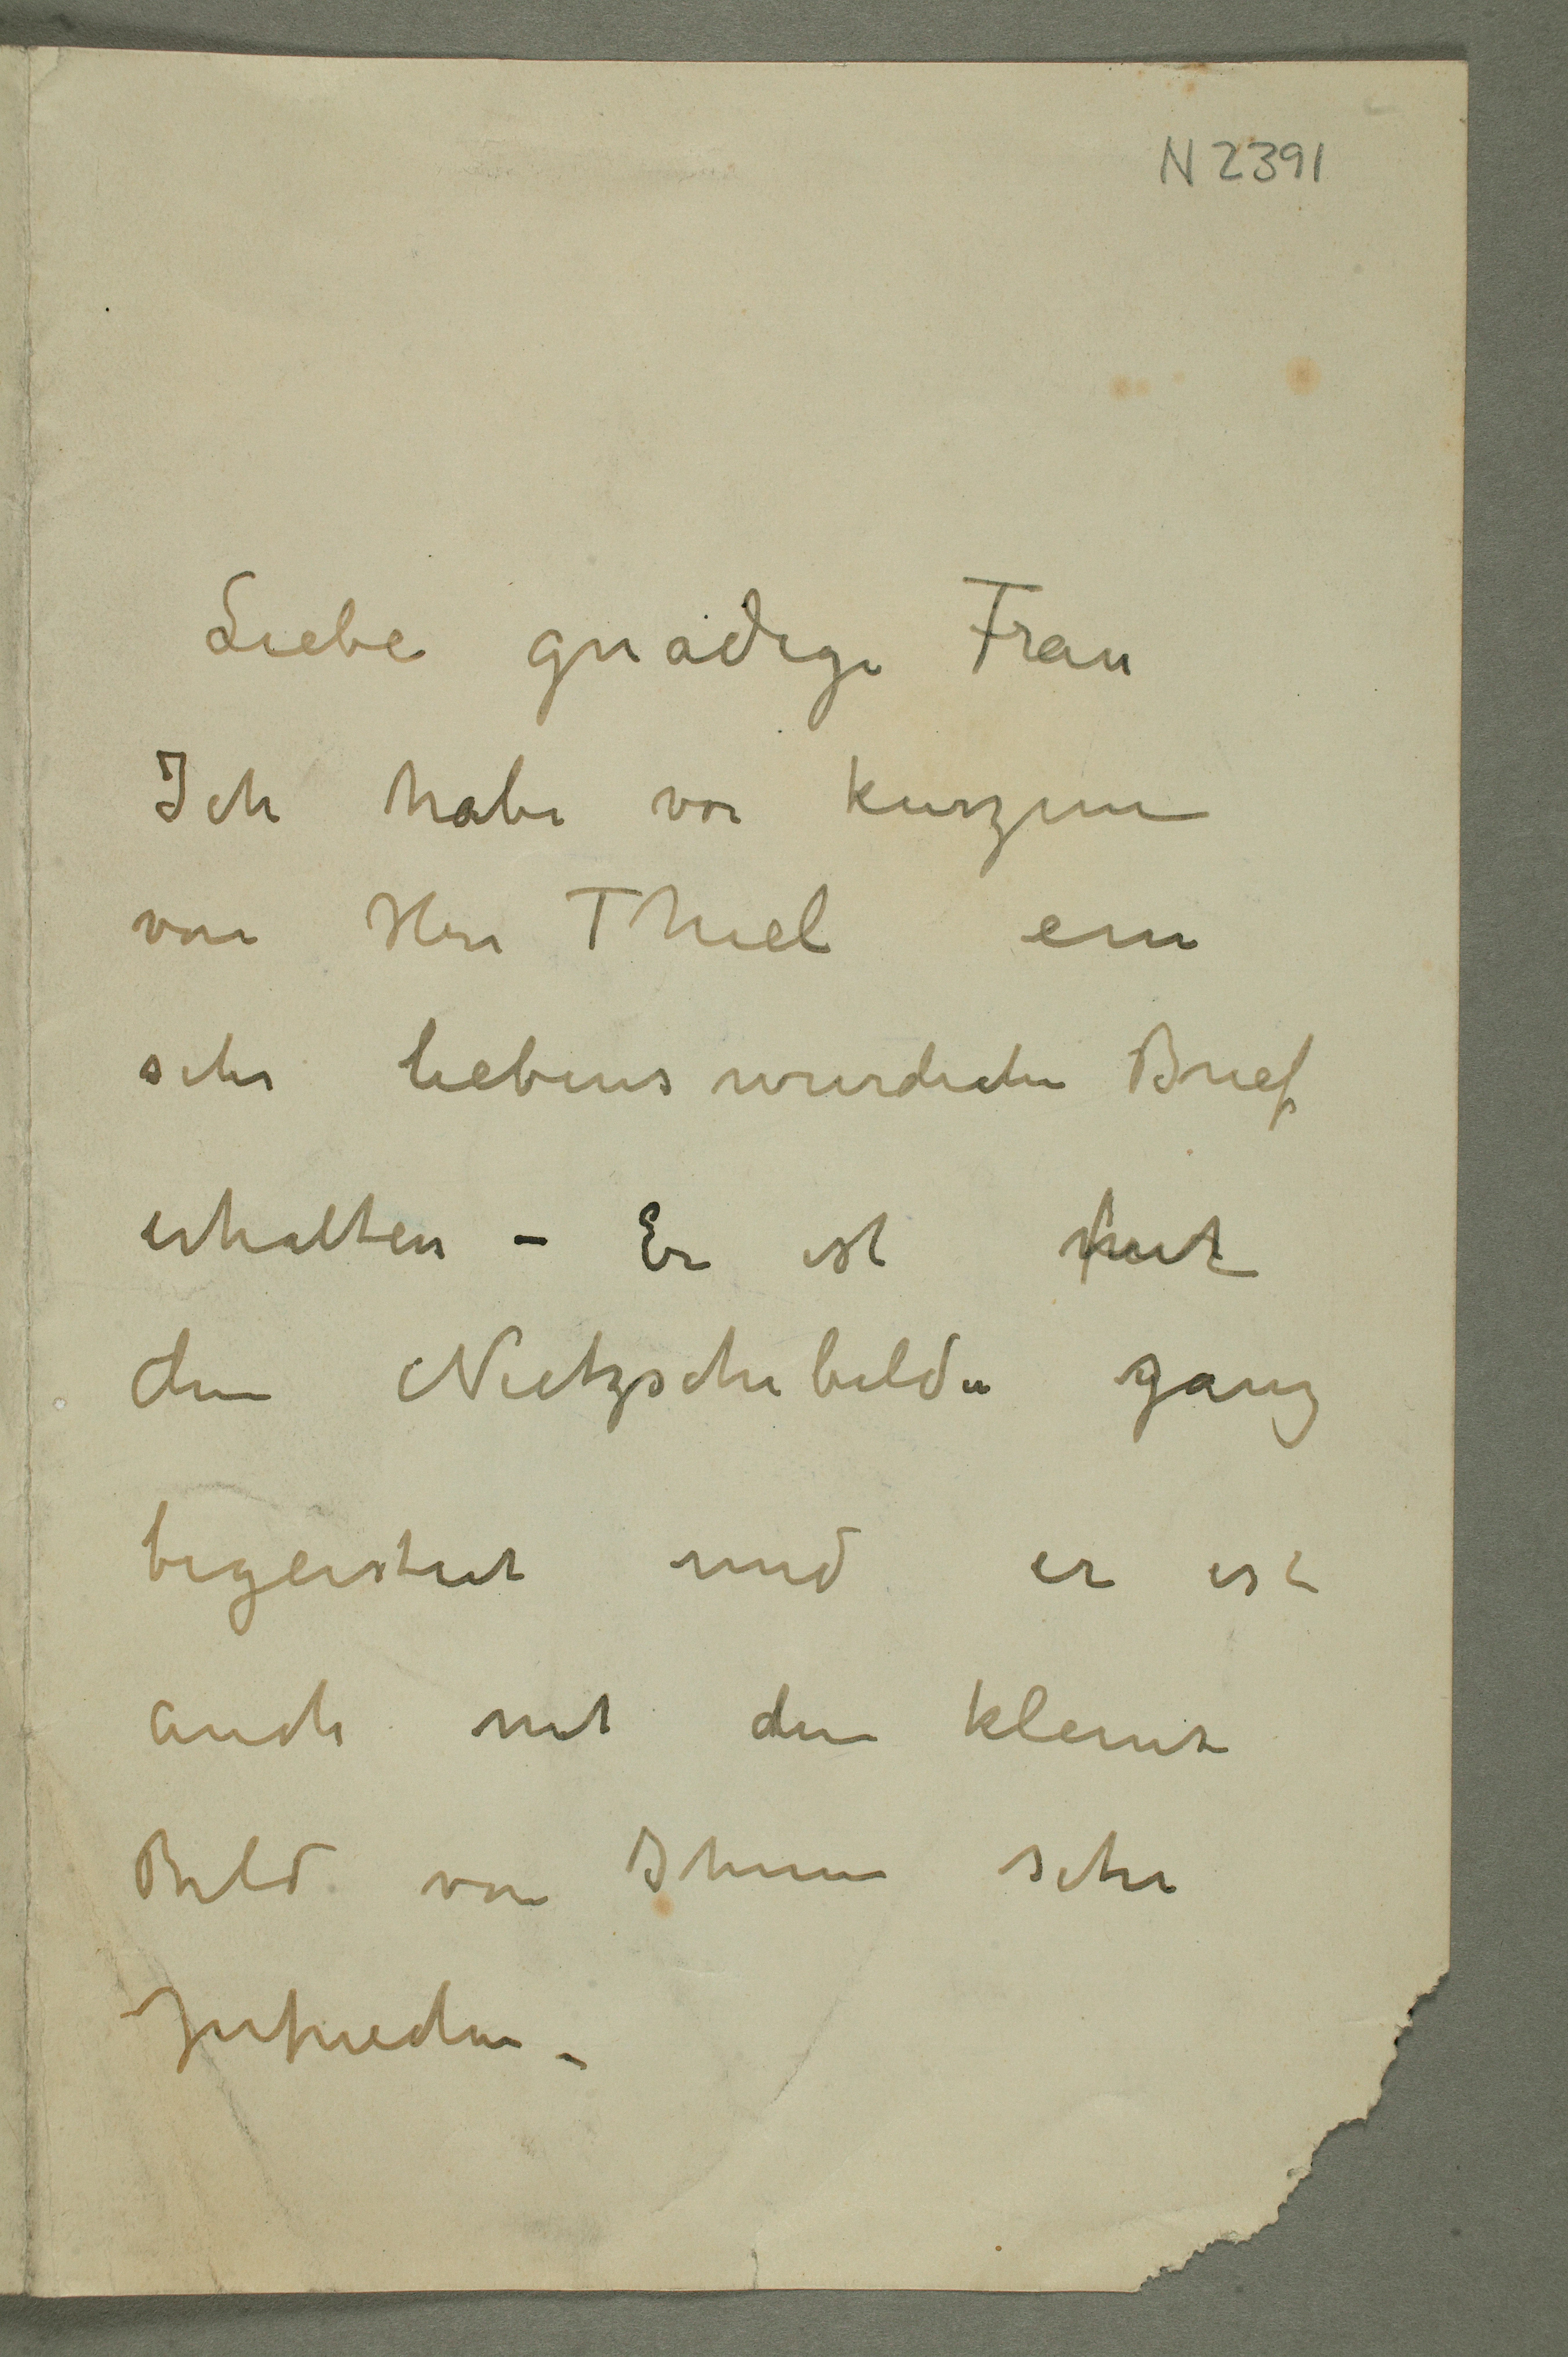 N 2391
Liebe gnädige Frau
Ich habe vor kurzem
von Herr Thiel ein
sehr liebenswurdichen Brief
erhalten – Er ist mit
dem Nietzschebilde ganz
begeistert und er ist
auch mit dem kleinen
Bild von Ihnen sehr
zufrieden –